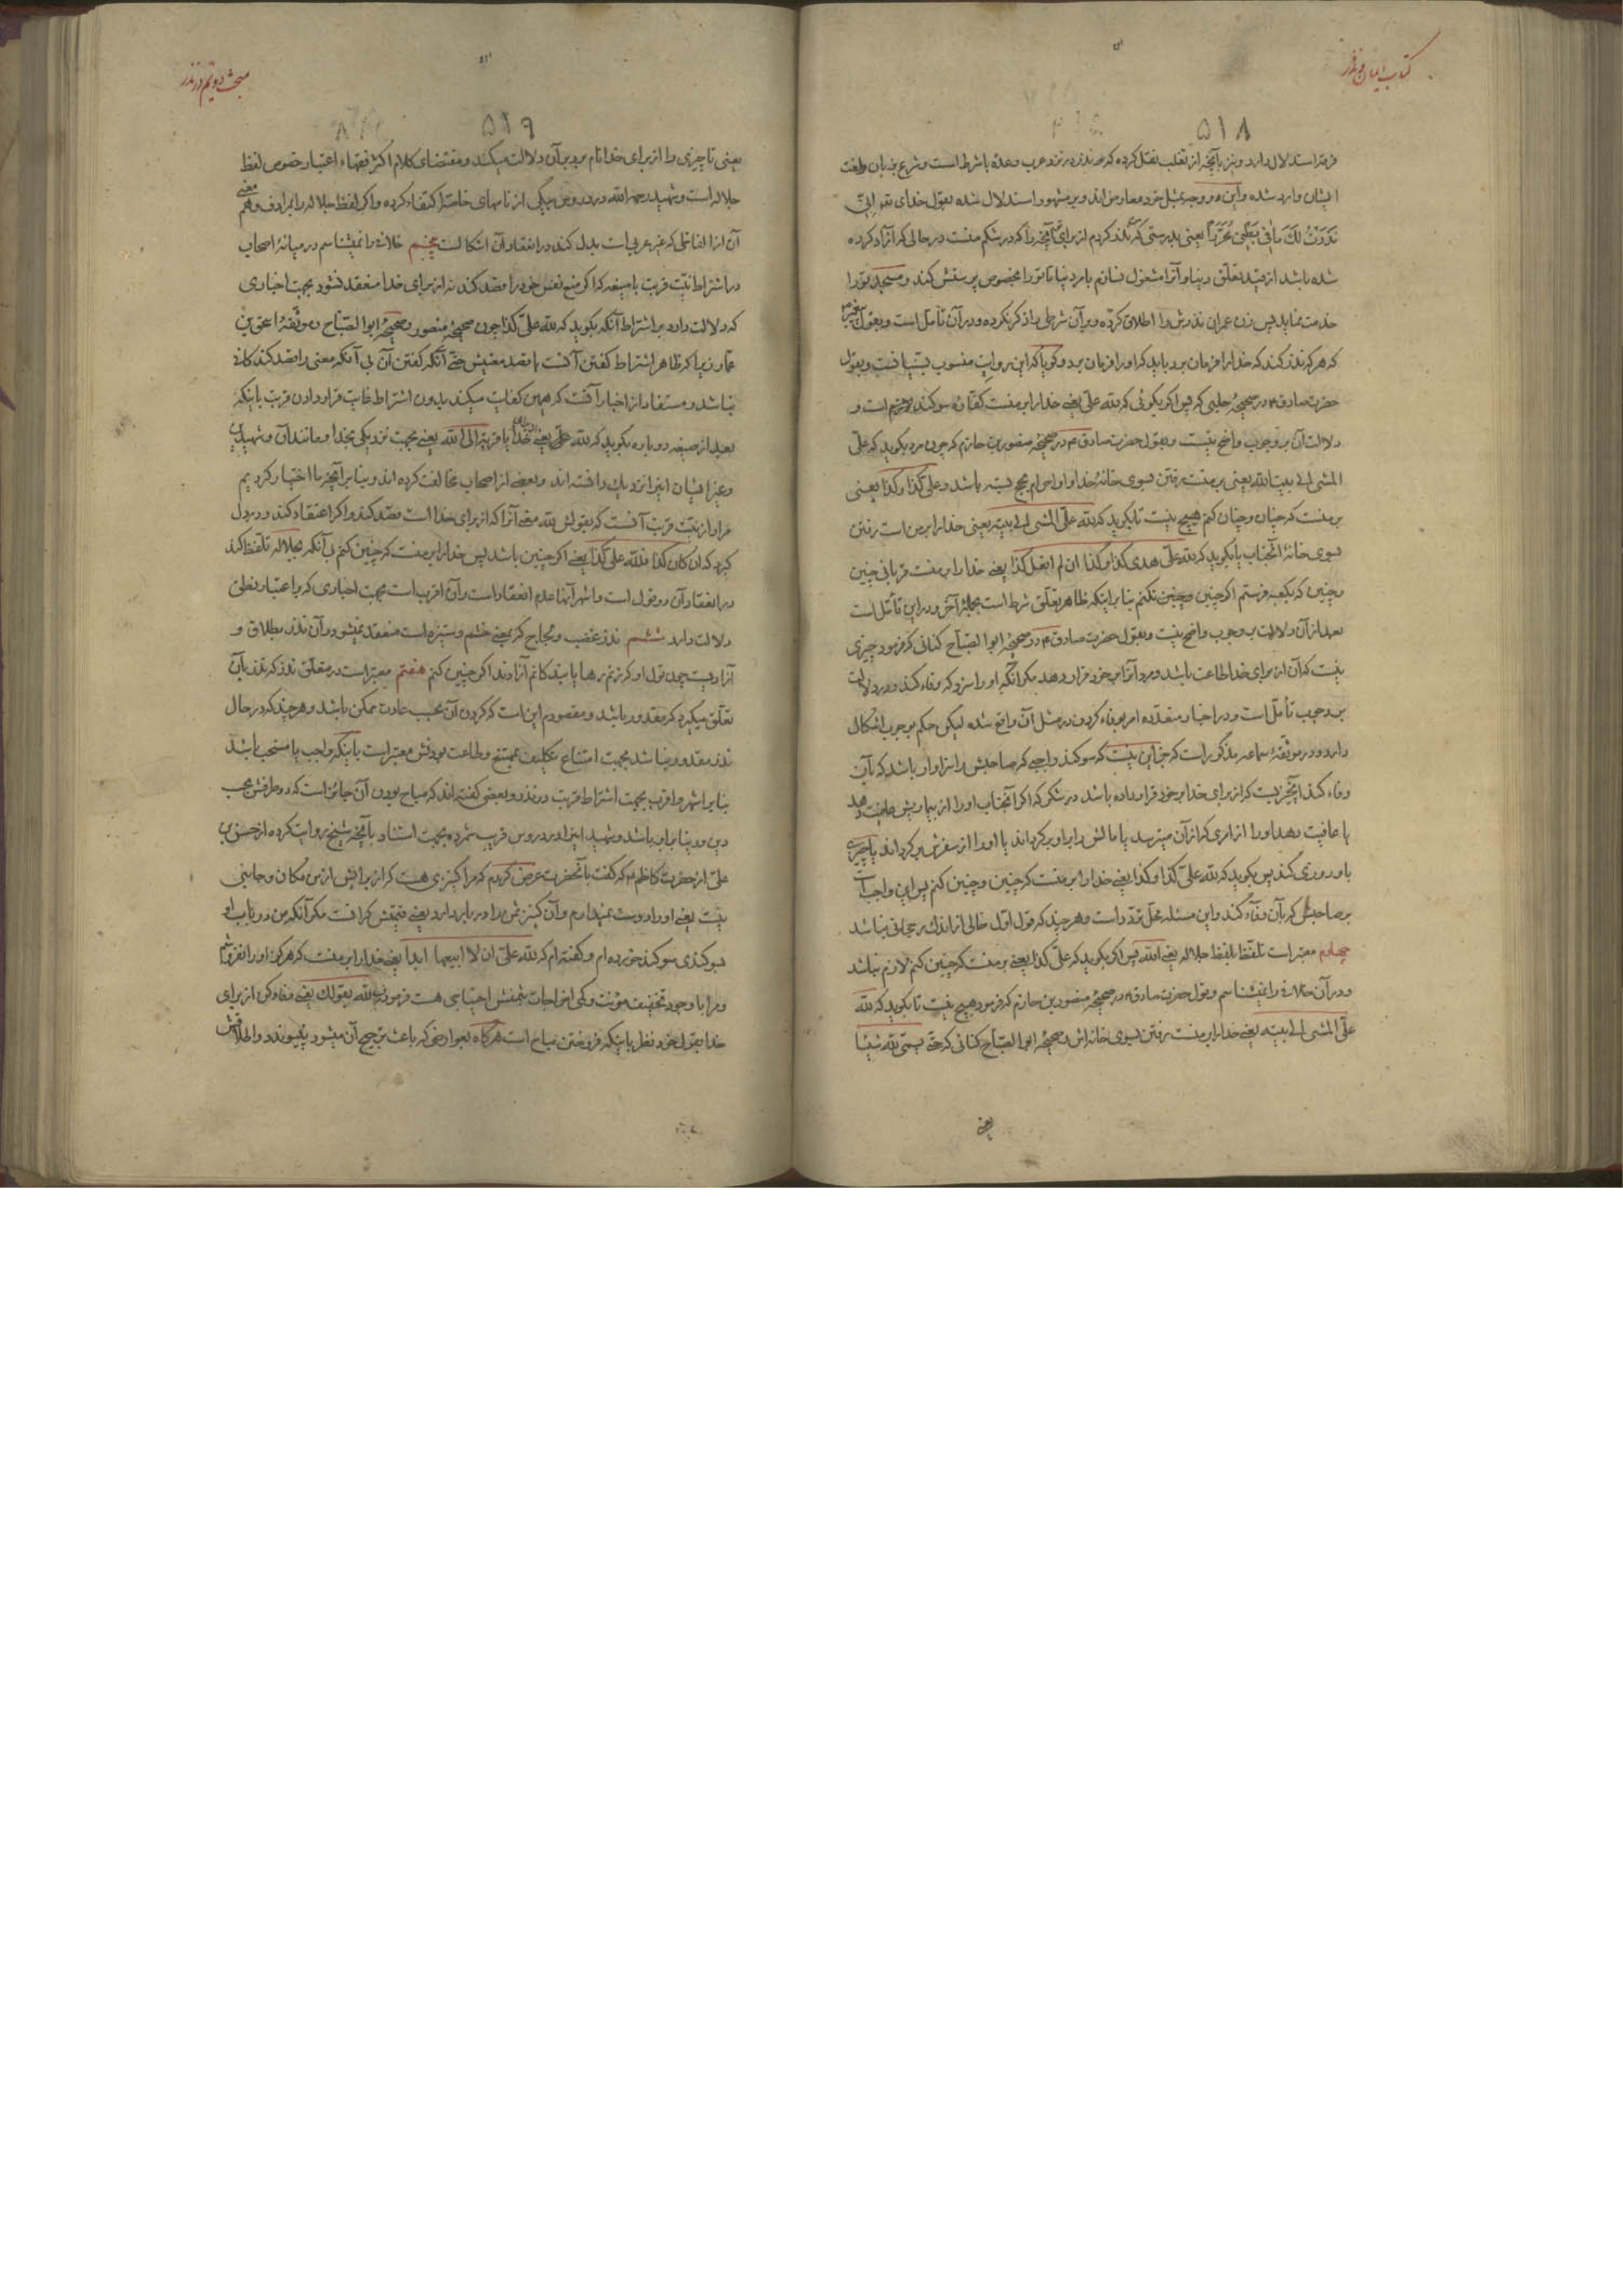 کتاب ایمان و نذر
۵۱۸
فرقه استدلال دارد و نیز بآنچه از ثعلب نقل کرده که نذر در نزد عرب وعده با شرط است و شرع بزبان و لغت
ایشان وارد شده و این دو وجه بمثل خود معارض اند و بر مشهور استدلال شده بقول خدای تعالی انی
نَذَرْتُ لَکَ ما فی بَطْنی مُحَرَّراً یعنی بدرستی که من نذر کردم از برای تو آنچه را که در شکم منست در حالی که آزاد کرده
شده باشد از قید تعلق دنیا و آنرا مشغول نسازم بامر دنیا تا تو را مخصوص پرستش کند و مسجد تو را
خدمت نماید پس زن عمران نذرش را اطلاق کرده و بر آن شرطی را ذکر نکرده و در آن تأمل است و بقول پیغمبر ص
که هر که نذر کند که خدا را فرمان برد باید که او را فرمان برد و گویا که این روایت منسوب بسنیانست و بقول
حضرت صادق ع در صحیحهٔ حلبی که پس اگر بگوئی که لله علیّ یعنی خدا را بر منست کفارهٔ سوکند لازم است و
دلالت آن بر وجوب واضح نیست و بقول حضرت صادق ع در صحیحهٔ منصور بن حازم که چون مرد بگوید که علیّ
المشی الی بیت الله یعنی بر منست رفتن بسوی خانهٔ خدا و او احرام بحج بسته باشد و علیّ کذا و کذا یعنی
بر منست که چنان و چنان کنم هیچ نیست تا بگوید که لله علیّ المشی الی بیته یعنی خدا را بر من است رفتن
بسوی خانهٔ آنجناب یا بگوید که لله علیّ هدی کذا و کذا ان لم افعل کذا یعنی خدا را بر منست قربانی چنین
و چنین که بکعبه فرستم اگر چنین و چنین نکنم بنا بر اینکه ظاهر تعلق شرط است بجملهٔ آخر و در این تأمل است
بعد از آن دلالت بر وجوب واضح نیست و بقول حضرت صادق ع در صحیحهٔ ابو الصباح کنانی که فرمود چیزی
نیست که آن از برای خدا طاعت باشد و مرد آنرا بر خود قرار دهد مگر آنکه او را سزد که وفاء کند و در دلالت
بر وجوب تأمل است و در اخبار متعدده امر بوفاء کردن در مثل آن واقع شده لیکن حکم بوجوب اشکال
دارد و در موثقهٔ سماعه مذکور است که جز این نیست که سوکند واجبی که صاحبش را سزاوار باشد که بآن
وفاء کند آنچیزیست که از برای خدا بر خود قرار داده باشد در شکر که اگر آنجناب او را از بیماریش عافیت دهد
یا عافیت دهد او را از امری که از آن میترسد یا مالش را بر او بر کرداند یا او را از سفرش بر کرداند یا چیزی
باو روزی کند پس بگوید که لله علیّ کذا و کذا یعنی خدا را بر منست که چنین و چنین کنم پس این واجب است
بر صاحبش که بآن وفاء کند و این مسئله محل تردد است و هر چند که قول اول خالی از اندک رجحانی نباشد
چهارم معتبر است تلفظ بلفظ جلاله یعنی الله پس اگر بگوید که علیّ کذا یعنی بر منست که چنین کنم لازم نباشد
و در آن خلاف را نمیشناسم و بقول حضرت صادق ع در صحیحهٔ منصور بن حازم که فرمود هیچ نیست تا بگوید که لله
علیّ المشی الی بیته یعنی خدا را بر منست رفتن بسوی خانه اش و صحیحهٔ ابو الصباح کنانی که حتی یسمی لله شیئا
یعنی
مبحث دویم در نذر
۵۱۹
یعنی تا چیزی را از برای خدا نام برد بر آن دلالت میکند و مقتضای کلام اکثر فقهاء اعتبار خصوص لفظ
جلاله است و شهید رحمه الله در دروس بیکی از نامهای خاصه اکتفاء کرده و اگر لفظ جلاله را بمرادف و هم معنی
آن از الفاظی که غیر عربی است بدل کند در انعقاد آن اشکالست پنجم خلاف را نمیشناسم در میانهٔ اصحاب
در اشتراط نیّت قربت با صیغه که اگر منع نفس خود را قصد کند نه از برای خدا منعقد نشود بجهت اخباری
که دلالت دارد بر اشتراط آنکه بگوید که لله علیّ کذا چون صحیحهٔ منصور و صحیحهٔ ابو الصباح و موثقهٔ اسحق بن
عمار زیرا که ظاهر اشتراط کفتن آنست با قصد معنیش حتی آنکه کفتن آن بی آنکه معنی را قصد کند کافی
نباشد و مستفاد از اخبار آنست که همین کفایت میکند بدون اشتراط غایت قرار دادن قربت باینکه
بعد از صیغه دوباره بگوید که لله علیّ یعنی خدا یا قربة الی الله یعنی بجهت نزدیکی بخدا و مانند آن و شهیدین
و غیر ایشان این را نزدیک دانسته اند و بعضی از اصحاب مخالفت کرده اند و بنا بر آنچه ما اختیار کردیم
مراد از نیّت قربت آنست که بقولش لله معنی آنرا که از برای خدا است قصد کند و اگر اعتقاد کند و در دل
گیرد که ان کان کذا فلله علیّ کذا یعنی اگر چنین باشد پس خدا را بر منست که چنین کنم بی آنکه بجلاله تلفظ کند
در انعقاد آن دو قول است و اشهر آنها عدم انعقاد است و آن اقربست بجهت اخباری که بر اعتبار نطق
دلالت دارد ششم نذر غضب و لجاج که بمعنی خشم و ستیزه است منعقد نمیشود و آن نذر بطلاق و
آزادیست چون قول او که زنم رها یا بندگانم آزادند اگر چنین کنم هفتم معتبر است در متعلق نذر که نذر بآن
تعلق میگیرد که مقدور باشد و مقصودم این است که کردن آن بحسب عادت ممکن باشد و هر چند که در حال
نذر مقدور نباشد بجهت امتناع تکلیف بممتنع و طاعت بودنش معتبر است باینکه واجب یا مستحب باشد
بنا بر اشهر و اقرب بجهت اشتراط قربت در نذر و بعضی کفته اند که مباح بودن آن جائز است که دو طرفش بحسب
دین و دنیا برابر باشد و شهید این را در دروس قریب شمرده بجهت استناد بآنچه شیخ روایت کرده از حسن بن
علی از حضرت کاظم ع که کفت بآنحضرت عرض کردم که مرا کنیزی هست که از برایش از من مکان و جانبی
نیست یعنی او را دوست نمیدارم و آن کنیز ثمن را در بر دارد یعنی قیمتش کرانست مگر آنکه من در باب او
سوکندی سوکند خورده ام و کفته ام که لله علیّ ان لا ابیعها ابدا یعنی خدا را بر منست که هرکز او را نفروشم
و مرا با وجود تخفیف مؤنت و کمی اخراجات بثمنش احتیاجی هست فرمود فِ لله بقولک یعنی وفاء کن از برای
خدا بقول خود نظر باینکه فروختن مباح است هرگاه بعوارضی که باعث ترجیح آن میشود نپیوندد و اطلاقش